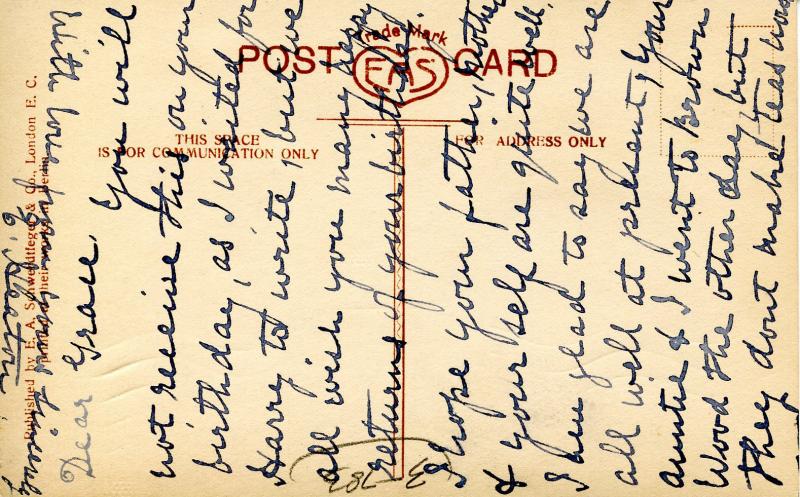 Trade Mark
POST CARD
EAS
THIS SPACE
IS FOR COMMUNICATION ONLY
FOR ADDRESS ONLY
Published by E. A. Schwerdtfeger & Co., London E. C.
Printed at their works in Berlin
Dear Grace, You will
not receive this on your
birthday, as I waited for
Harry to write, but we
all wish you many happy
returns of your birthday
I hope your father, mother
& yourself are quite well,
I am glad to say we are
all well at present, your
auntie & I went to Brown
Wood the other day but
they dont make teas now
With love from